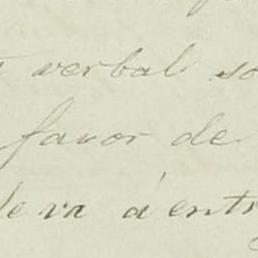 verbal so
favor de
leva á entr